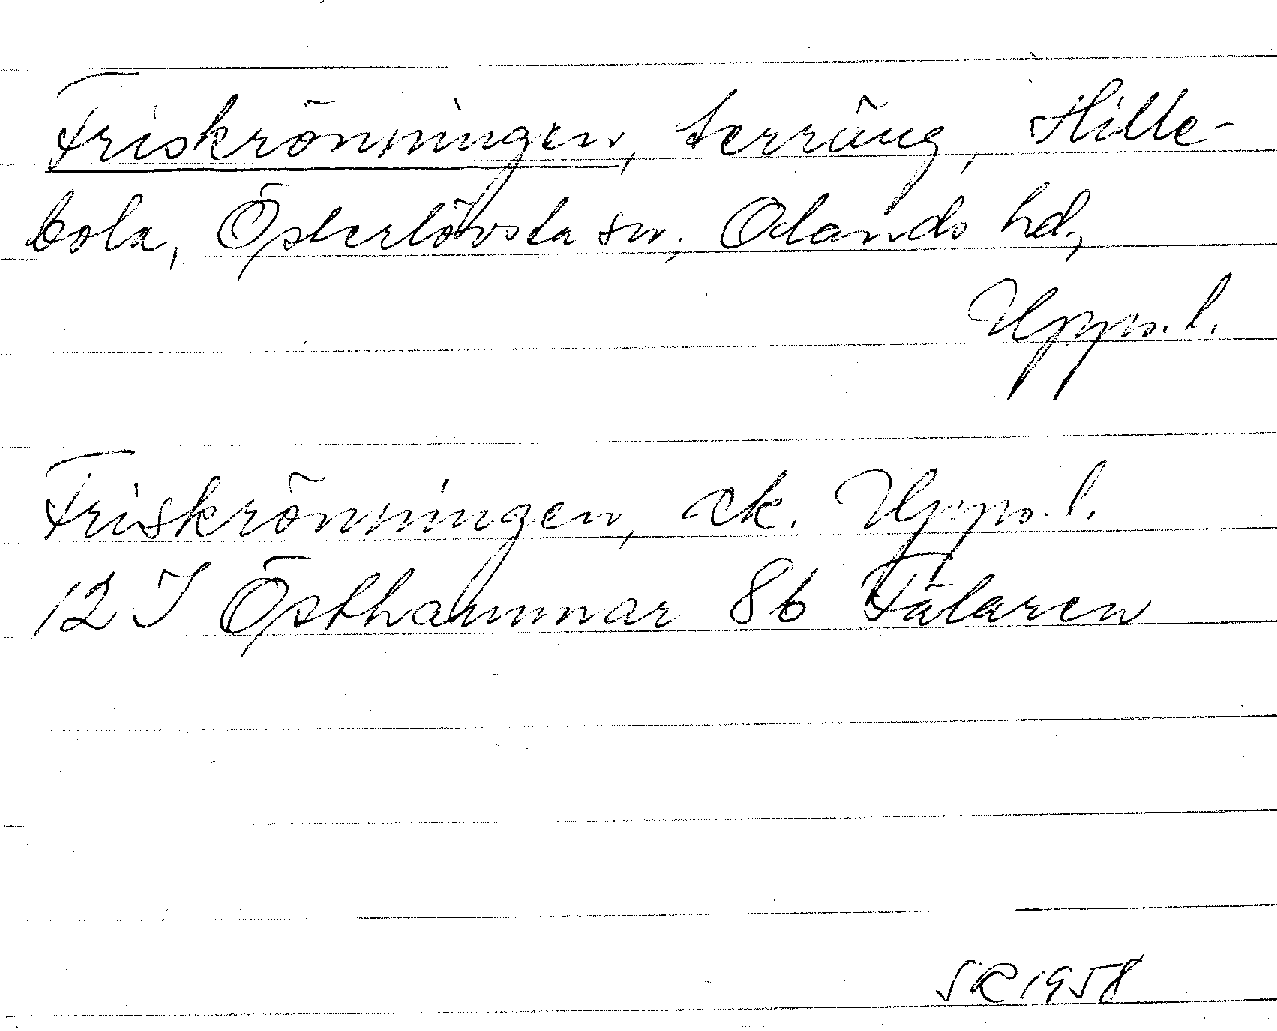 Friskrönningen, terräng, Hille-
bola, Österlövsta sn, Olands hd,
Upps. l.
Friskrönningen, ek. Upps. l.
12 I Östhammar 8b Fälaren
SR 1958